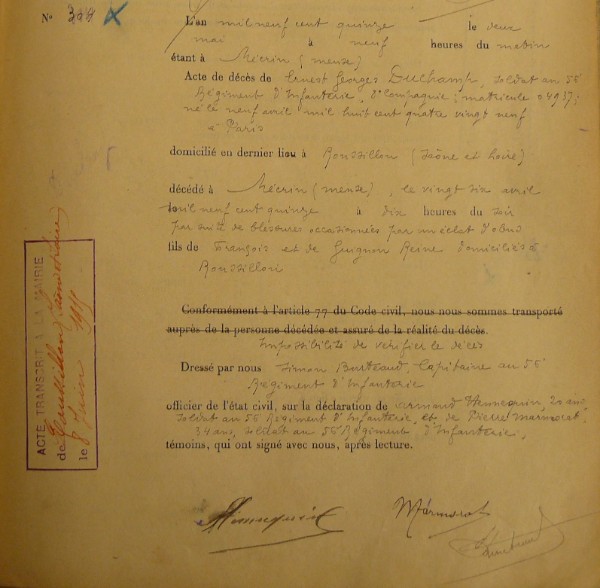 N° 388
L'an mil neuf cent quinze le deux
mai à neuf heures du matin
étant à Mécrin (meuse)
Acte de décès de Ernest Georges Duchamp, soldat au 56
Régiment d'Infanterie, Compagnie; matricule 04937;
né le neuf avril mil huit cent quatre vingt neuf
à Paris
domicilié en dernier lieu à Roussillon (Saône et Loire)
décédé à Mécrin (meuse), le vingt six avril
mil neuf cent quinze à dix heures du soir
par suite de blessures occasionnées par un éclat d'obus
fils de François et de Guignon Reine domiciliés à
Roussillon
Conformément à l'article 77 du Code civil, nous nous sommes transporté
auprès de la personne décédée et assuré de la réalité du décès.
Impossibilité de vérifier le décès
Dressé par nous Simon Capitaine au 56
Régiment d'Infanterie
officier de l'état civil, sur la déclaration de Armand Hennequin, 20 ans
soldat au 56 Régiment d'Infanterie, et de Pierre Marmorat,
34 ans, soldat au 56 Régiment d'Infanterie,
témoins, qui ont signé avec nous, après lecture.
Marmorat
ACTE TRANSCRIT A LA MAIRIE
de Roussillon
le 8 Juin 1915